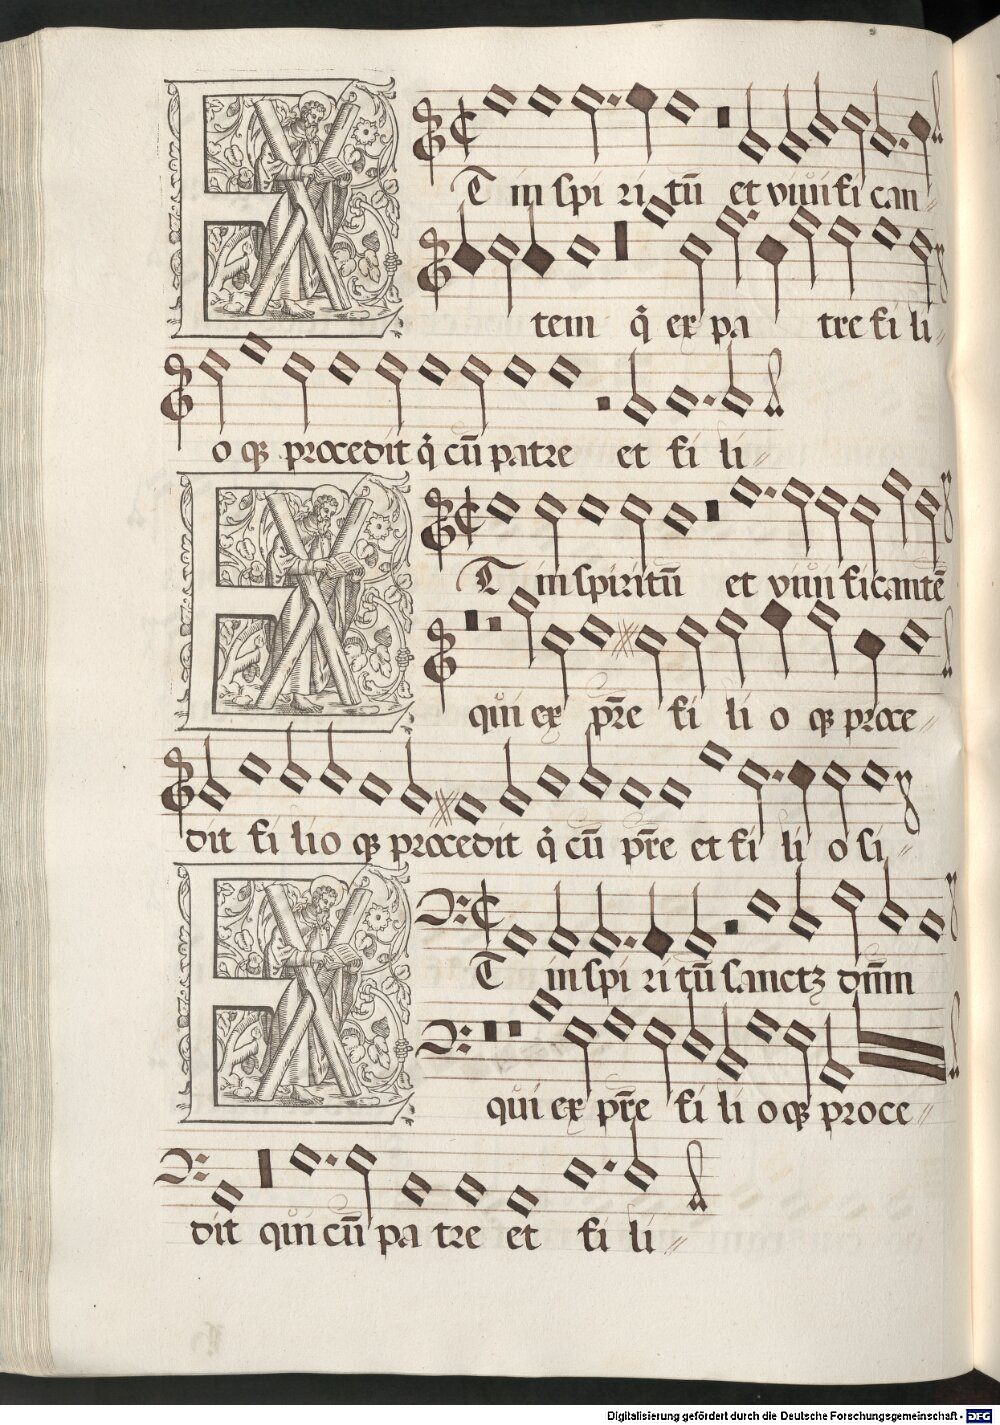 ET in spi ri tū et viui fi can
tem q̇ ex pa tre fi li
o qꝫ procedit q̇ cū patre et fi li
ET in spiritū et viui ficantē
qui ex p̄re fi li o qꝫ proce
dit fi lio qꝫ procedit q̇ cū p̄re et fi li o si
ET in spi ri tū sanctꝫ dn̄m
qui ex p̄re fi li o qꝫ proce
dit qui cū pa tre et fi li
Digitalisierung gefördert durch die Deutsche Forschungsgemeinschaft - DFG